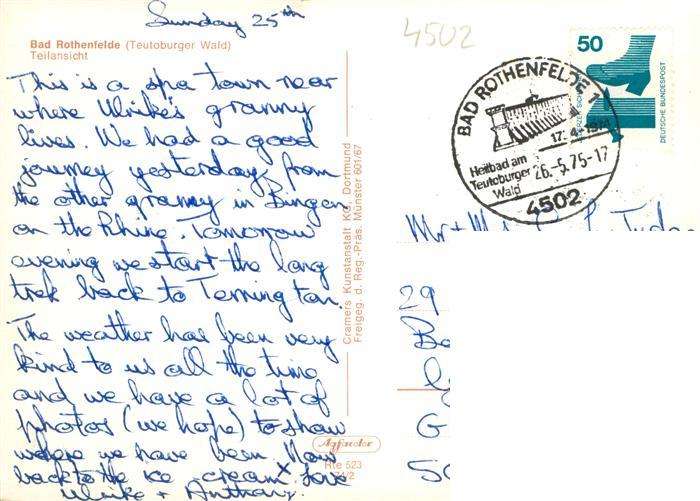 Sunday 25th
Bad Rothenfelde (Teutoburger Wald)
Teilansicht
This is a spa town near
where Ulrike's granny
lives. We had a good
journey yesterday, from
the other granny in Bingen
on the Rhine. Tomorrow
evening we start the long
trek back to Terrington.
The weather has been very
kind to us all the time
and we have a lot of
photos (we hope) to show
where we have been. Now
back to the ice cream x love
Ulrike + Anthony.
Cramers Kunstanstalt KG, Dortmund
Freigeg. d. Reg.-Präs. Münster 601/67
Agfacolor
Rfe 523
4502
50
DEUTSCHE BUNDESPOST
BAD ROTHENFELDE 1
Heilbad am
Teutoburger
Wald
26.-5.75-17
4502
Mr + Mr
29
G